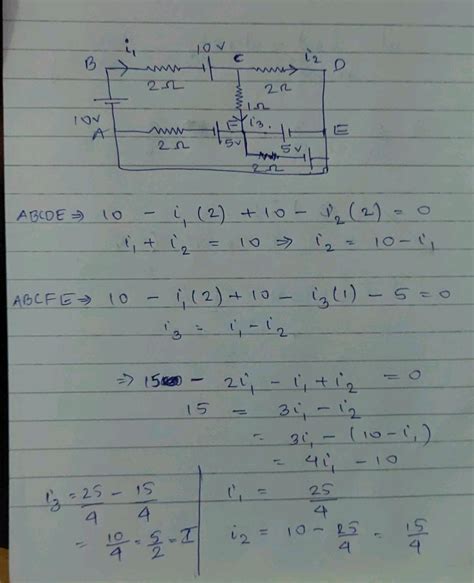 i₁ 10V C i₂
B D
2Ω 2Ω
1Ω
10V
A F i₃. E
2Ω 5V 5V
2Ω
ABCDE ⇒ 10 - i₁(2) + 10 - i₂(2) = 0
i₁ + i₂ = 10 ⇒ i₂ = 10 - i₁
ABCFE ⇒ 10 - i₁(2) + 10 - i₃(1) - 5 = 0
i₃ = i₁ - i₂
⇒ 15 - 2i₁ - i₁ + i₂ = 0
15 = 3i₁ - i₂
= 3i₁ - (10 - i₁)
= 4i₁ - 10
i₃ = 25/4 - 15/4
= 10/4 = 5/2 = I
i₁ = 25/4
i₂ = 10 - 25/4 = 15/4